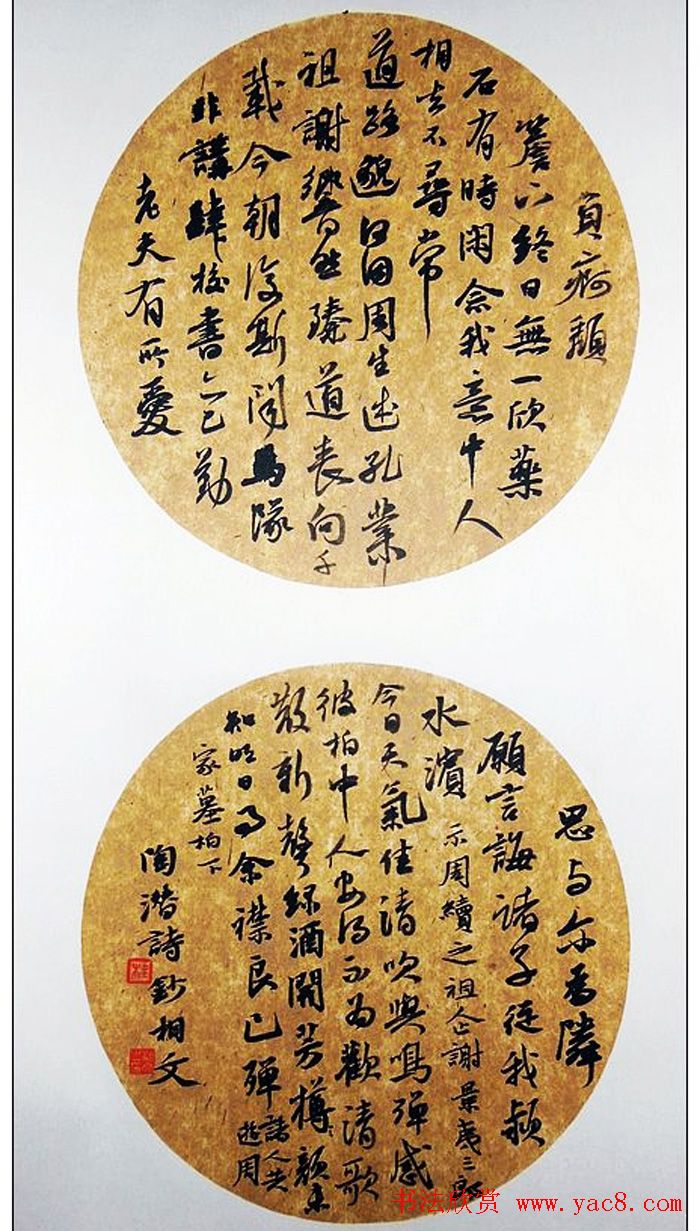 負痾頹
簷下終日無一欣藥
石有時閑念我意中人
相去不尋常
道路邈何因周生述孔業
祖謝響然臻道喪向千
載今朝復斯聞馬隊
非講肆校書亦已勤
老夫有所愛
思与尔為隣
願言誨諸子從我潁
水濱 示周續之祖企謝景夷三郎
今日天氣佳清吹與鳴彈感
彼柏中人安得不為歡清歌
散新聲綠酒開芳樽顏未
知明日事余襟良已殫 諸人共遊周
家墓柏下
陶潛詩鈔相文
书法欣赏 www.yac8.com